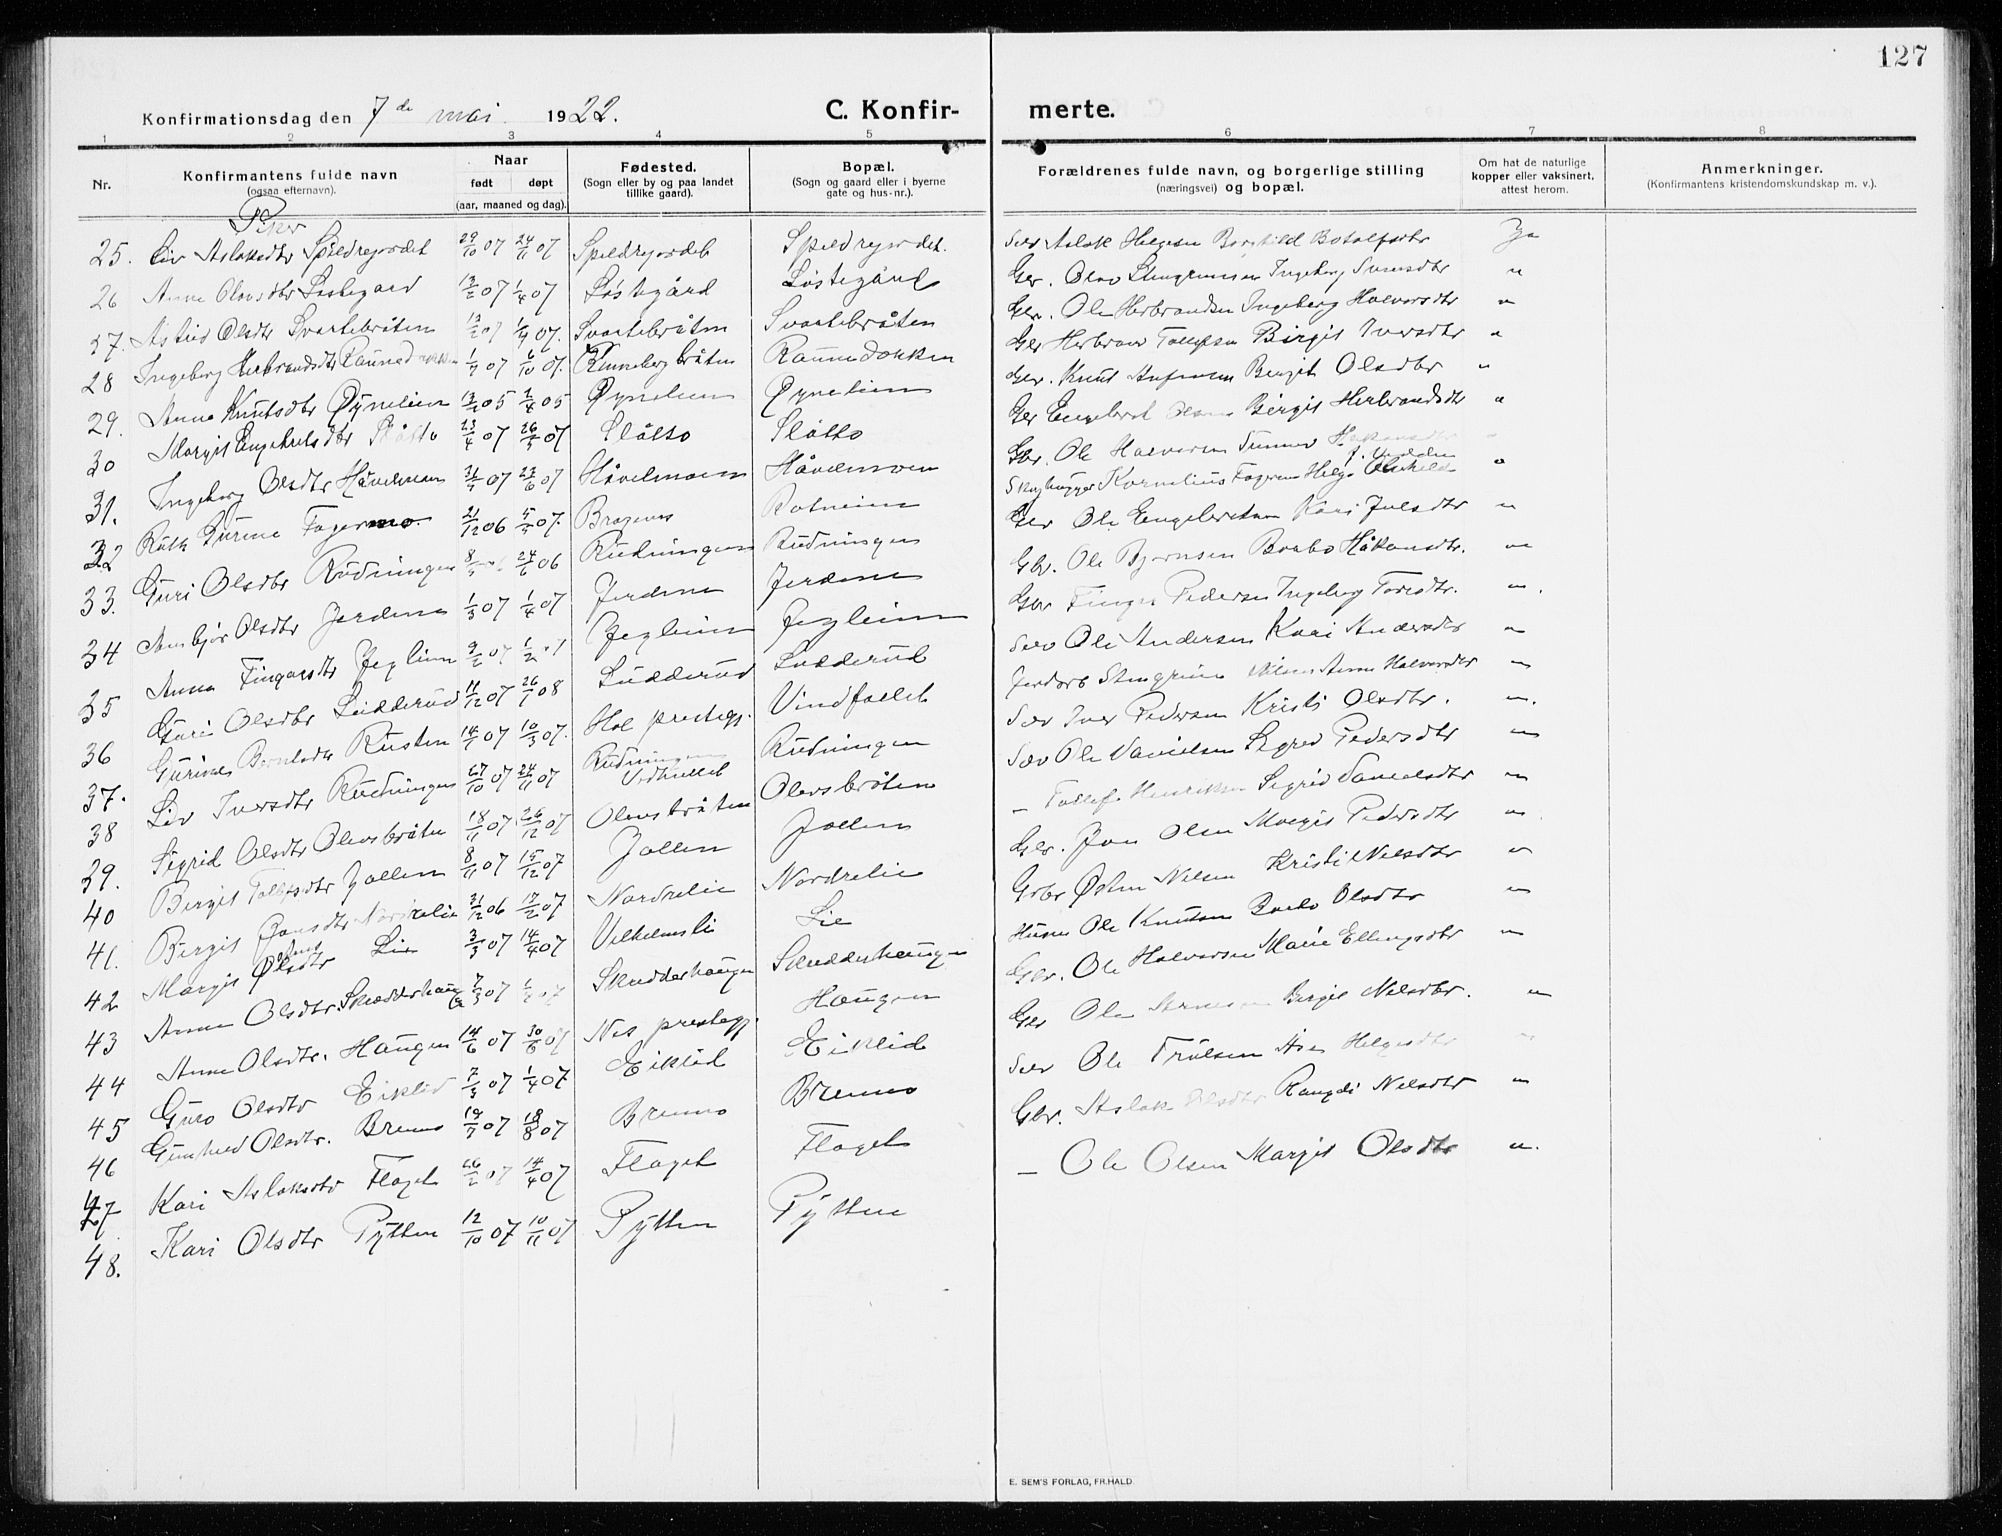 127
Konfirmationsdag den 7de mai 1922. C. Konfir- merte.
1 2 3 4 5 6 7 8
Nr. Konfirmantens fulde navn (ogsaa efternavn). Naar født døpt (aar, maaned og dag). Fødested. (Sogn eller by og paa landet tillike gaard). Bopæl. (Sogn og gaard eller i byerne gate og hus-nr.). Forældrenes fulde navn, og borgerlige stilling (næringsvei) og bopæl. Om hat de naturlige kopper eller vaksinert, attest herom. Anmerkninger. (Konfirmantens kristendomskundskap m. v.).
Piker
25. Liv Aslaksdtr Spildrejordet 29/10 07 24/11 07 Spildrejordet Spildrejordet. Aslak Helgesen Borghild Botolfsdtr Ja
26 Anne Olavsdtr Løstegård 07 1/4 07 Løstegård Løstegård Gbr. Olav Stengrimsen Ingebjørg Svensdtr "
27. Astrid Olsdtr Svartebråten 07 1/4 07. Svartebråten Svartebråten Gbr. Ole Herbrandsen Ingeborg Halvorsdtr "
28 Ingeborg Herbrandsdtr 07 6/10 07. Renneberg bråten Raunedokken Gbr Herbrand Tollefsen Birgit Iversdtr "
29. Anne Knutsdtr Øynelien 05 05 Øynelien Øynelien Gbr. Knut Birgit Olsdtr "
30 Margit Engebretsdtr Slåtto 23/4 07 26/5 07 Slåtto Slåtto Gbr Engebret Olsen Birgit Herbrandsdtr "
31. Ingeborg Olsdtr Håvelmoen 07 23/6 07 Håvelmoen Håvelmoen Gbr. Ole Halvorsen Gunnor "
32 Ruth Gurine Fagermo 21/12 06 07. Bragenes Rotneim Skoghugger Kornelius Fagermo Helga "
33. Guri Olsdtr Rudningen 24/6 06 Rudningen Rudningen Gbr Ole Engebretsen Kari Juelsdtr "
34 Ambjør Olsdtr Jordene 1/3 07 1/4 07 Jordene Jordene Gbr. Ole Bjørnsen Barbo Håkonsdtr. "
35 Anna Fingarsdtr Jegleim 07 Jegleim Jegleim Gbr Finger Pedersen Ingeborg Toresdtr. "
36 Guri Olsdtr Ludderud 11/12 07 26/1 08 Ludderud Ludderud Ole Andersen Kari Andersdtr "
37. Gurine Rusten 14/1 07 10/3 07. Hol prestegj. Vindfallet Stengrim Nilsen Anne Halvorsdtr "
38 Liv Iversdtr Rudningen 27/10 07 24/11 07 Rudningen Rudningen Iver Pedersen Kristi Olsdtr. "
39. Sigrid Olsdtr Olevsbråten 18/11 07 26/12 07 Olevsbråten Olevsbråten Ole Danielsen Sigrid Pedersdtr "
40 Birgit Tollefsdtr Jallen 8/11 07 15/12 07 Jallen Jallen – Tollef Henriksen Sigrid Danielsdtr "
41. Birgit Jonsdtr Nordrelie 31/12 06 17/2 07 Nordrelie Nordrelie Gbr. Jon Olsen Margit Pedersdtr "
42 Margit Lie 3/3 07 14/4 07 Vilhelmsli Lie Gbr Østen Nilsen Kristi Nilsdtr "
43 Anne Olsdtr. Skudderhaugen 07 07 Skudderhaugen Skudderhaugen Husm Ole Knutsen Barbo Olsdtr "
44 Anne Olsdtr. Haugen 14/6 07 30/6 07 Nes prestegj. Haugen Gbr. Ole Halvorsen Marie Ellingsdtr "
45 Guro Olsdtr Eiklid 7/3 07 1/4 07 Eiklid Eiklid Gbr Ole Birgit Nilsdtr. "
46 Gunhild Olsdtr. Brenno 19/7 07 18/8 07 Brenno Brenno Ole Trulsen Helgesdtr "
47 Kari Aslaksdtr Flaget 26/2 07 14/4 07 Flaget Flaget Gbr. Aslak Rangdi Nilsdtr "
48. Kari Olsdtr Pytten 12/10 07 10/11 07 Pytten Pytten – Ole Olsen Margit Olsdtr "
E. SEM'S FORLAG, FR.HALD